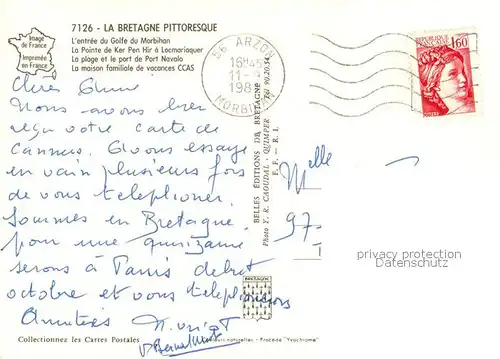 7126 - LA BRETAGNE PITTORESQUE
Image de France
Imprimée en France
L'entrée du Golfe du Morbihan
La Pointe de Ker Pen Hir à Locmariaquer
La plage et le port de Port Navalo
La maison familiale de vacances CCAS
56 ARZON
16H45
11 -
198
MORBIHAN
REPUBLIQUE FRANCAISE
1,60
POSTES
Nous avons bien
reçu votre carte de
Cannes. Avons essayé
en vain plusieurs fois
de vous telephoner.
Sommes en Bretagne
pour une quinzaine
serons à Paris debut
octobre et vous telephonerons
Amitiés
BELLES ÉDITIONS DE BRETAGNE
Photo Y. R. CAOUDAL - QUIMPER - Tél 90.20.54
E. F. - R. I.
Melle
97-
privacy protection
Datenschutz
BRETAGNE
Collectionnez les Cartes Postales
Couleurs naturelles - Procédé "Yvochrome"